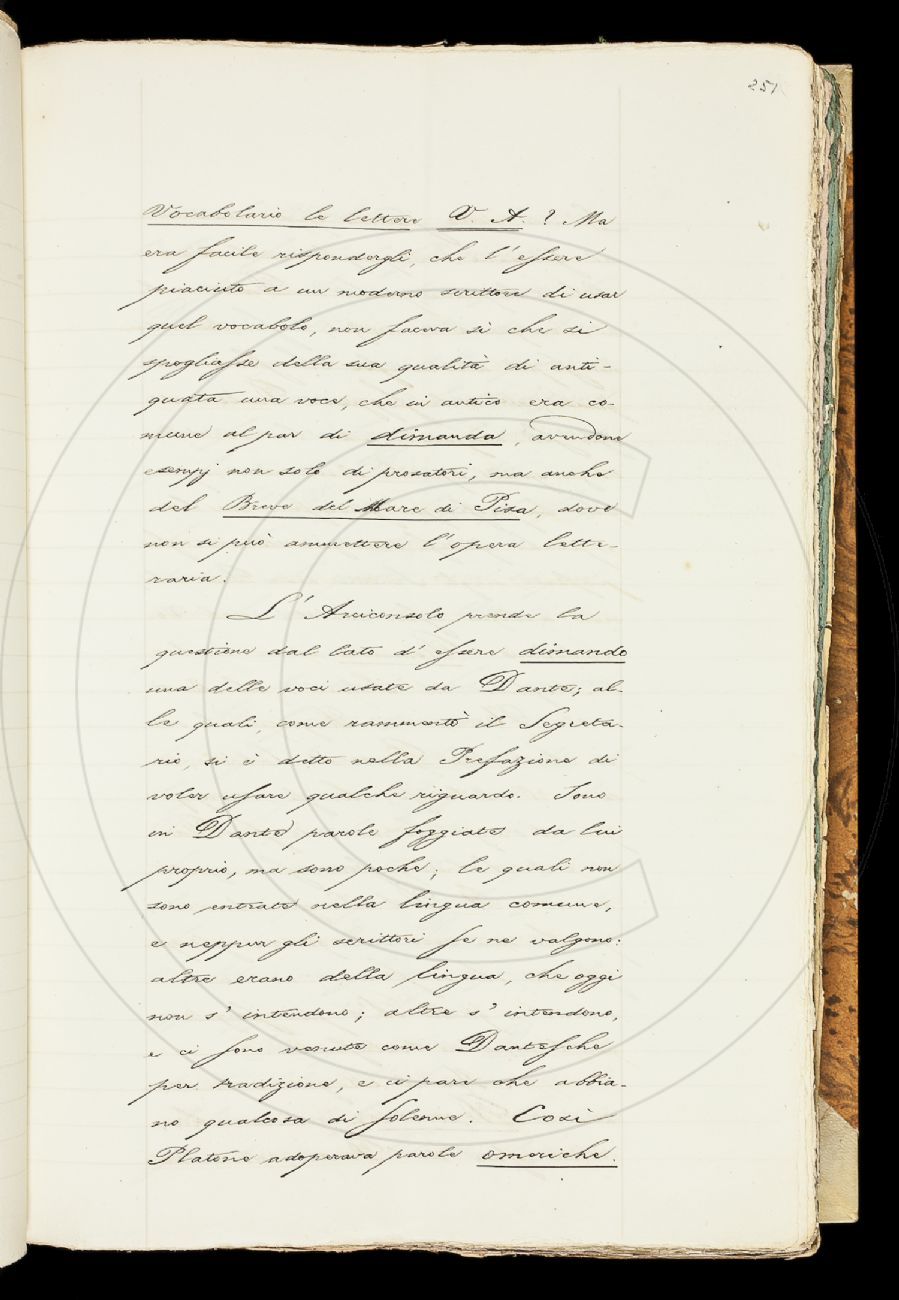 251
Vocabolario le lettere V. A.? Ma
era facile rispondergli, che l'essere
piaciuto a un moderno scrittore di usar
quel vocabolo, non faceva sì che si
spogliasse della sua qualità di anti-
quata una voce, che in antico era co-
mune al par di dimanda, avendone
esempj non solo di prosatori, ma anche
del Breve del Mare di Pisa, dove
non si può ammettere l'opera lette-
raria.
L'Arciconsolo prende la
questione dal lato d'essere dimando
una delle voci usate da Dante; al-
le quali, come rammentò il Segreta-
rio, si è detto nella Prefazione di
voler usare qualche riguardo. Sono
in Dante parole foggiate da lui
proprio, ma sono poche; le quali non
sono entrate nella lingua comune,
e neppur gli scrittori se ne valgono:
altre erano della lingua, che oggi
non s'intendono; altre s'intendono,
e ci sono venute come Dantesche
per tradizione, e ci pare che abbia-
no qualcosa di solenne. Così
Platone adoperava parole omeriche.